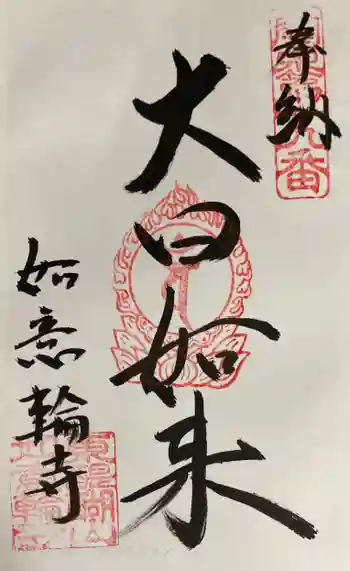 奉納
大日如来
如意輪寺